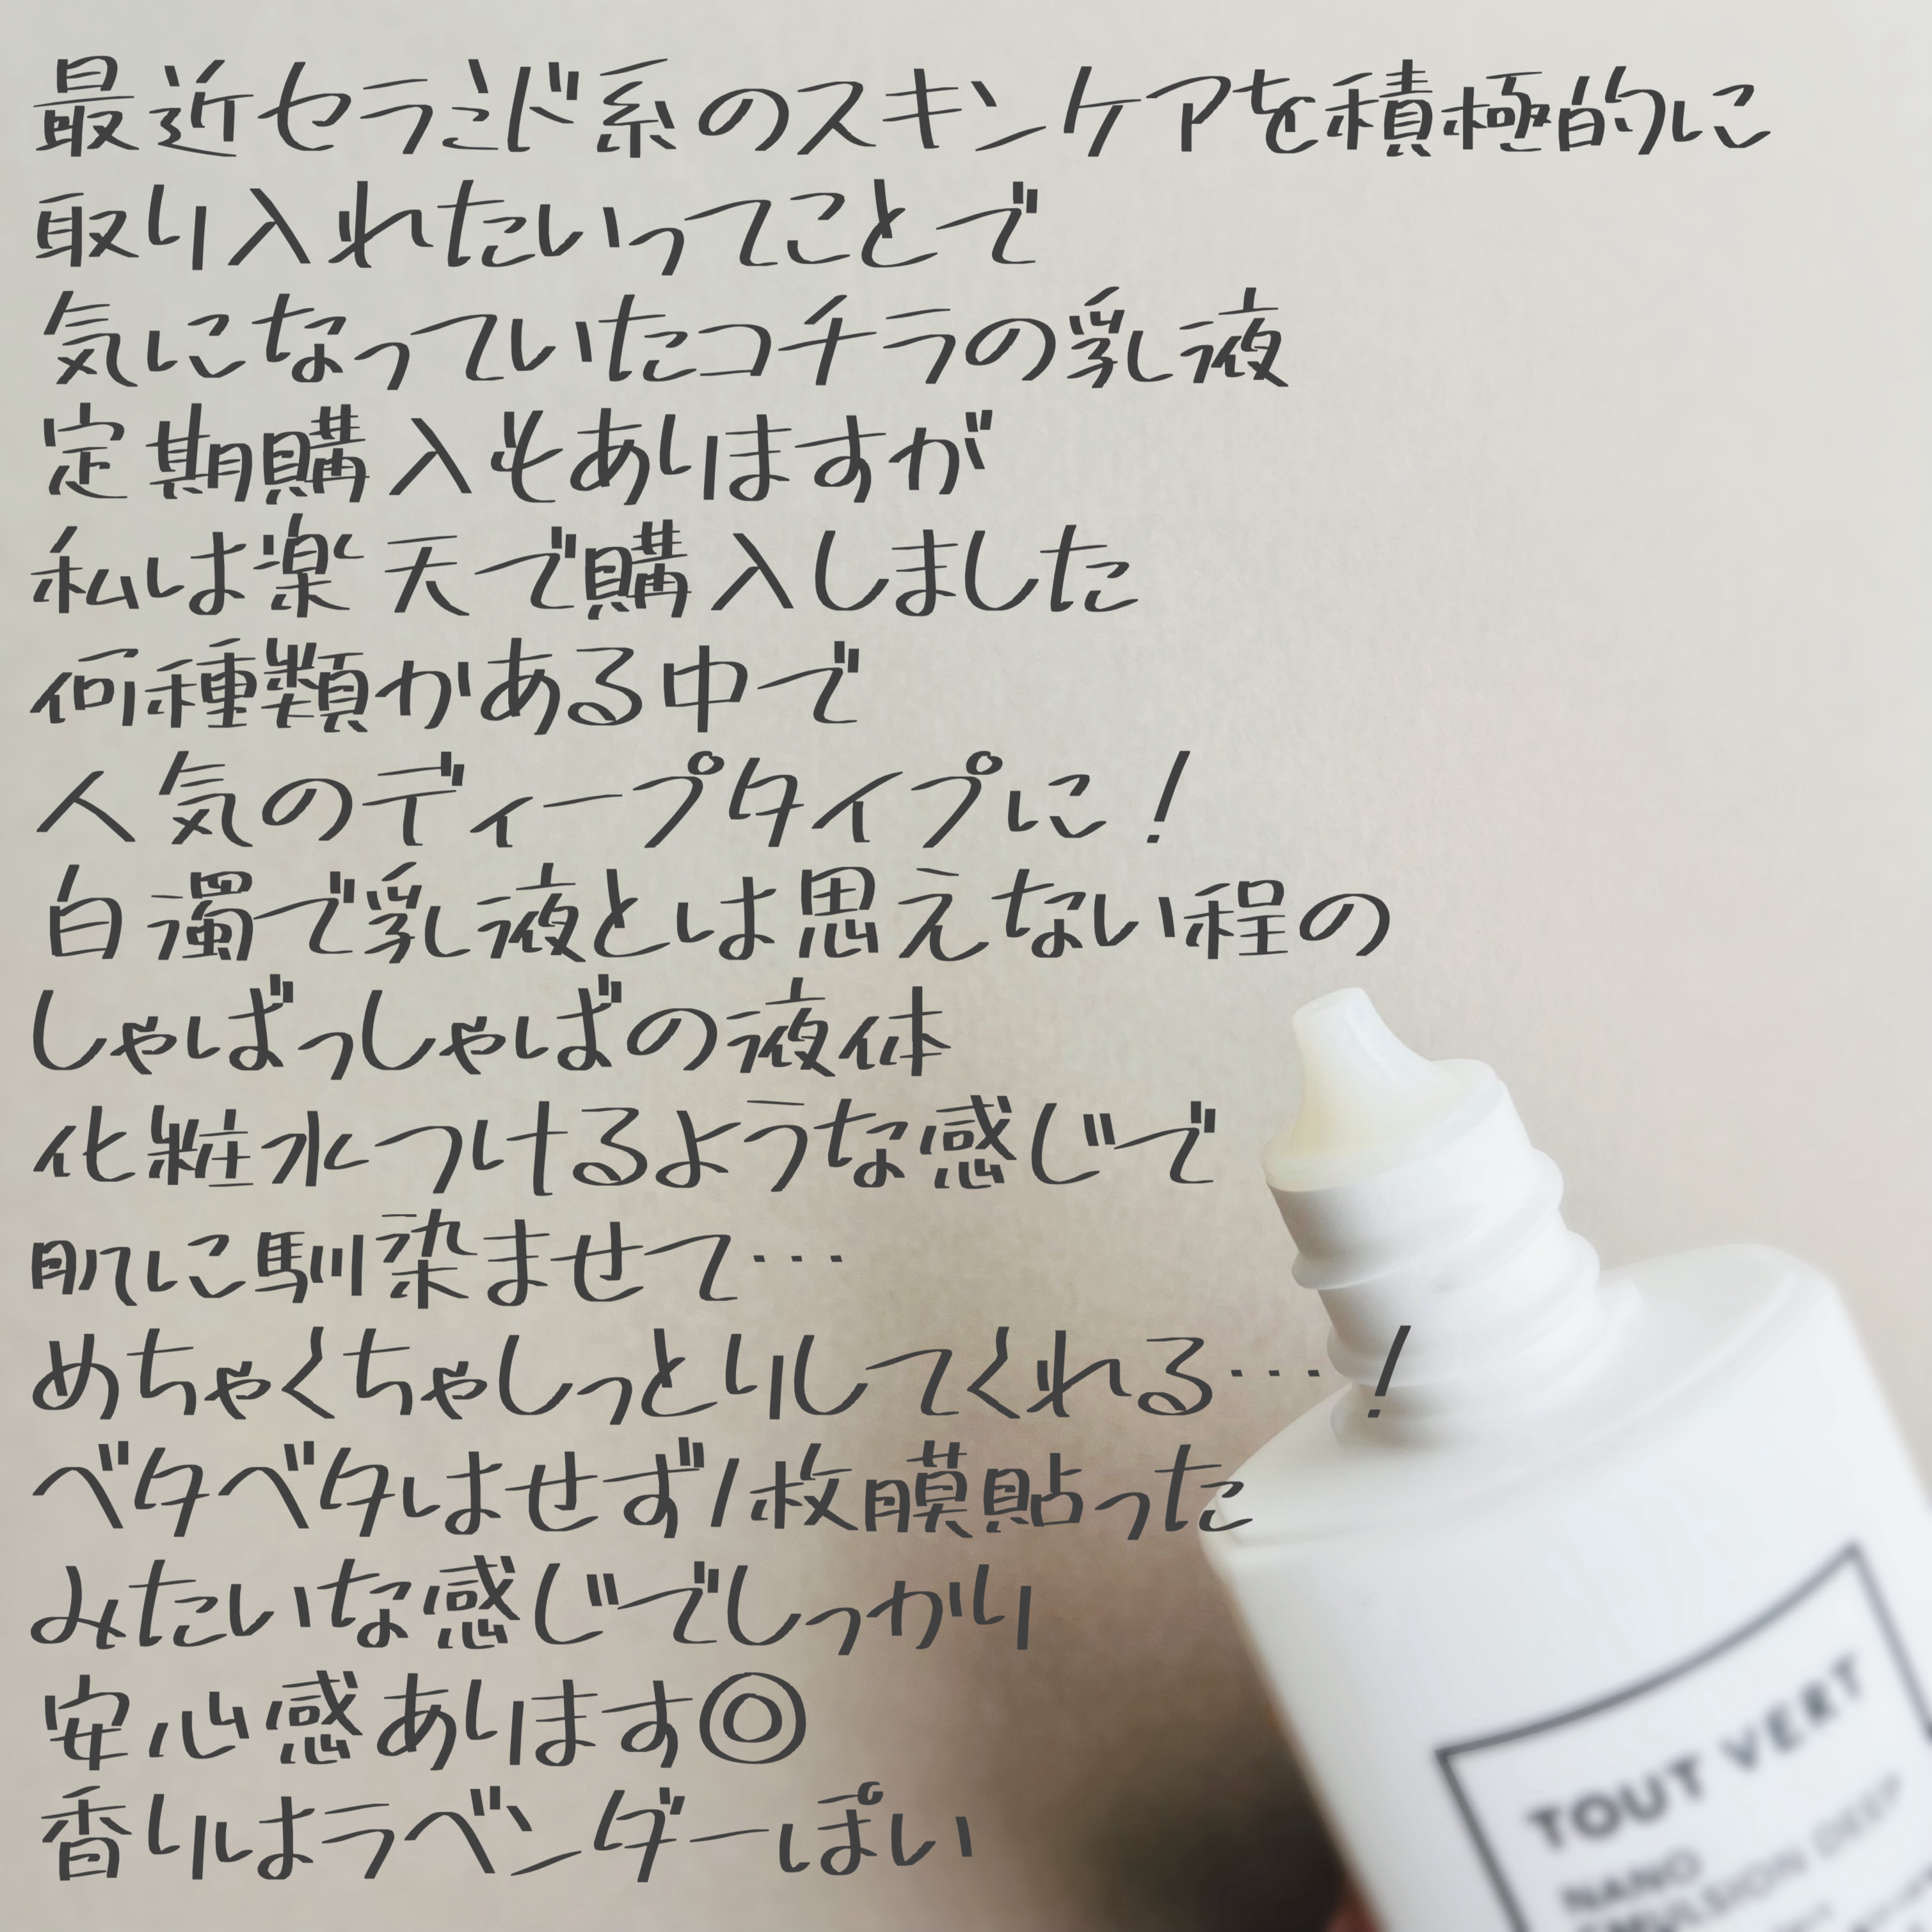 最近セラミド系のスキンケアを積極的に
取り入れたいってことで
気になっていたコチラの乳液
定期購入もありますが
私は楽天で購入しました
何種類かある中で
人気のディープタイプに!
白濁で乳液とは思えない程の
しゃばっしゃばの液体
化粧水つけるような感じで
肌に馴染ませて…
めちゃくちゃしっとりしてくれる…!
ベタベタはせず1枚膜貼った
みたいな感じでしっかり
安心感あります◎
香りはラベンダーぽい
TOUT VERT
NANO
EMULSION DEEP